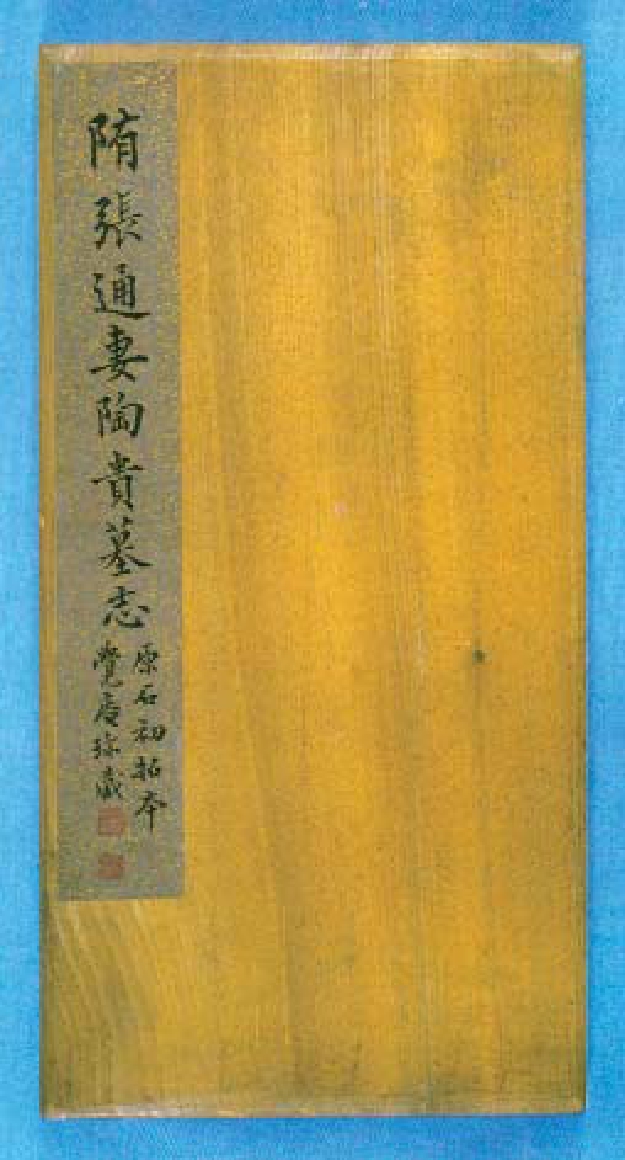 隋張通妻陶貴墓志
原石初拓本
覺盦珍藏